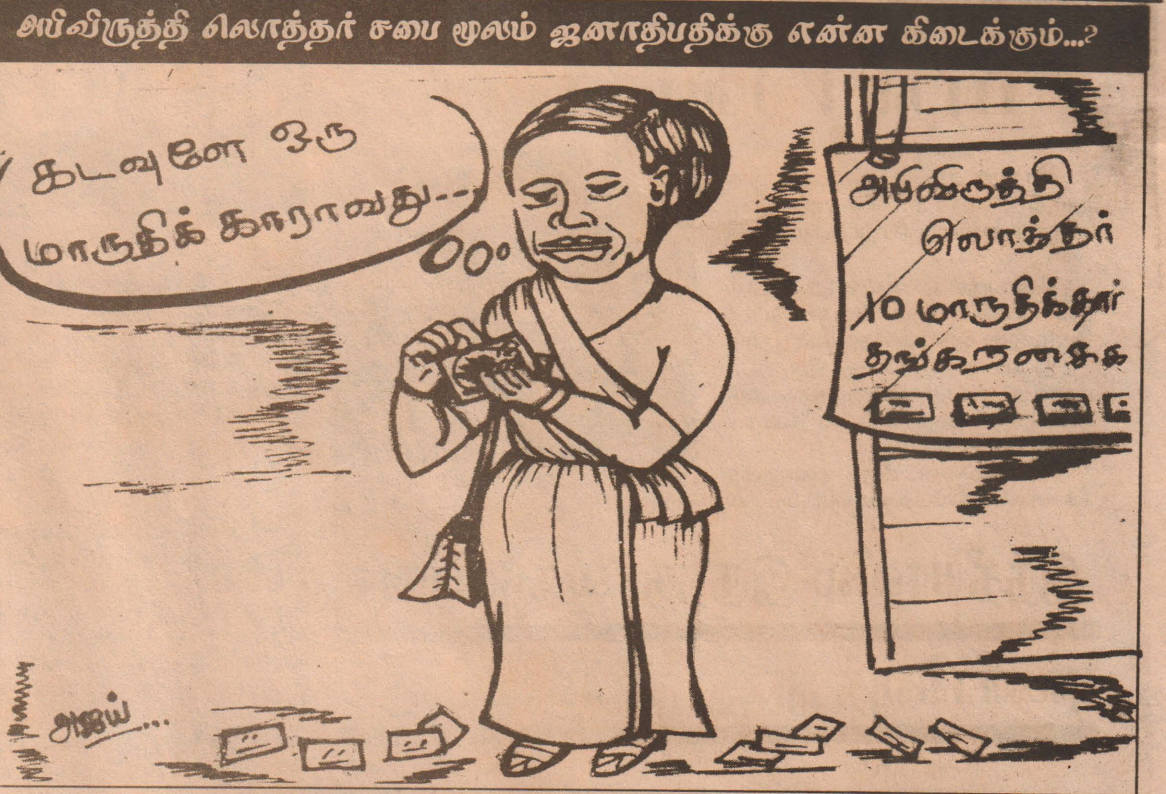 அபிவிருத்தி லொத்தர் சபை மூலம் ஜனாதிபதிக்கு என்ன கிடைக்கும்...?
கடவுளே ஒரு
மாருதிக் காராவது...
அபிவிருத்தி
லொத்தர்
10 மாருதிக்கார்
அஜய்...